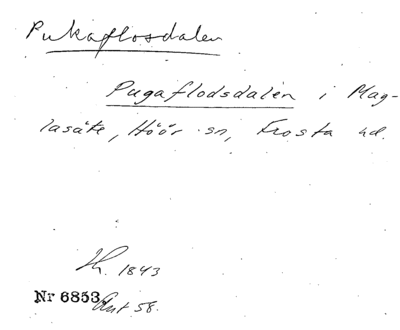 Pukaflosdalen
Pugaflodsdalen i Mag-
lasäte, Höör sn, Frosta hd.
1843
Nr 6853 Ant. 58.